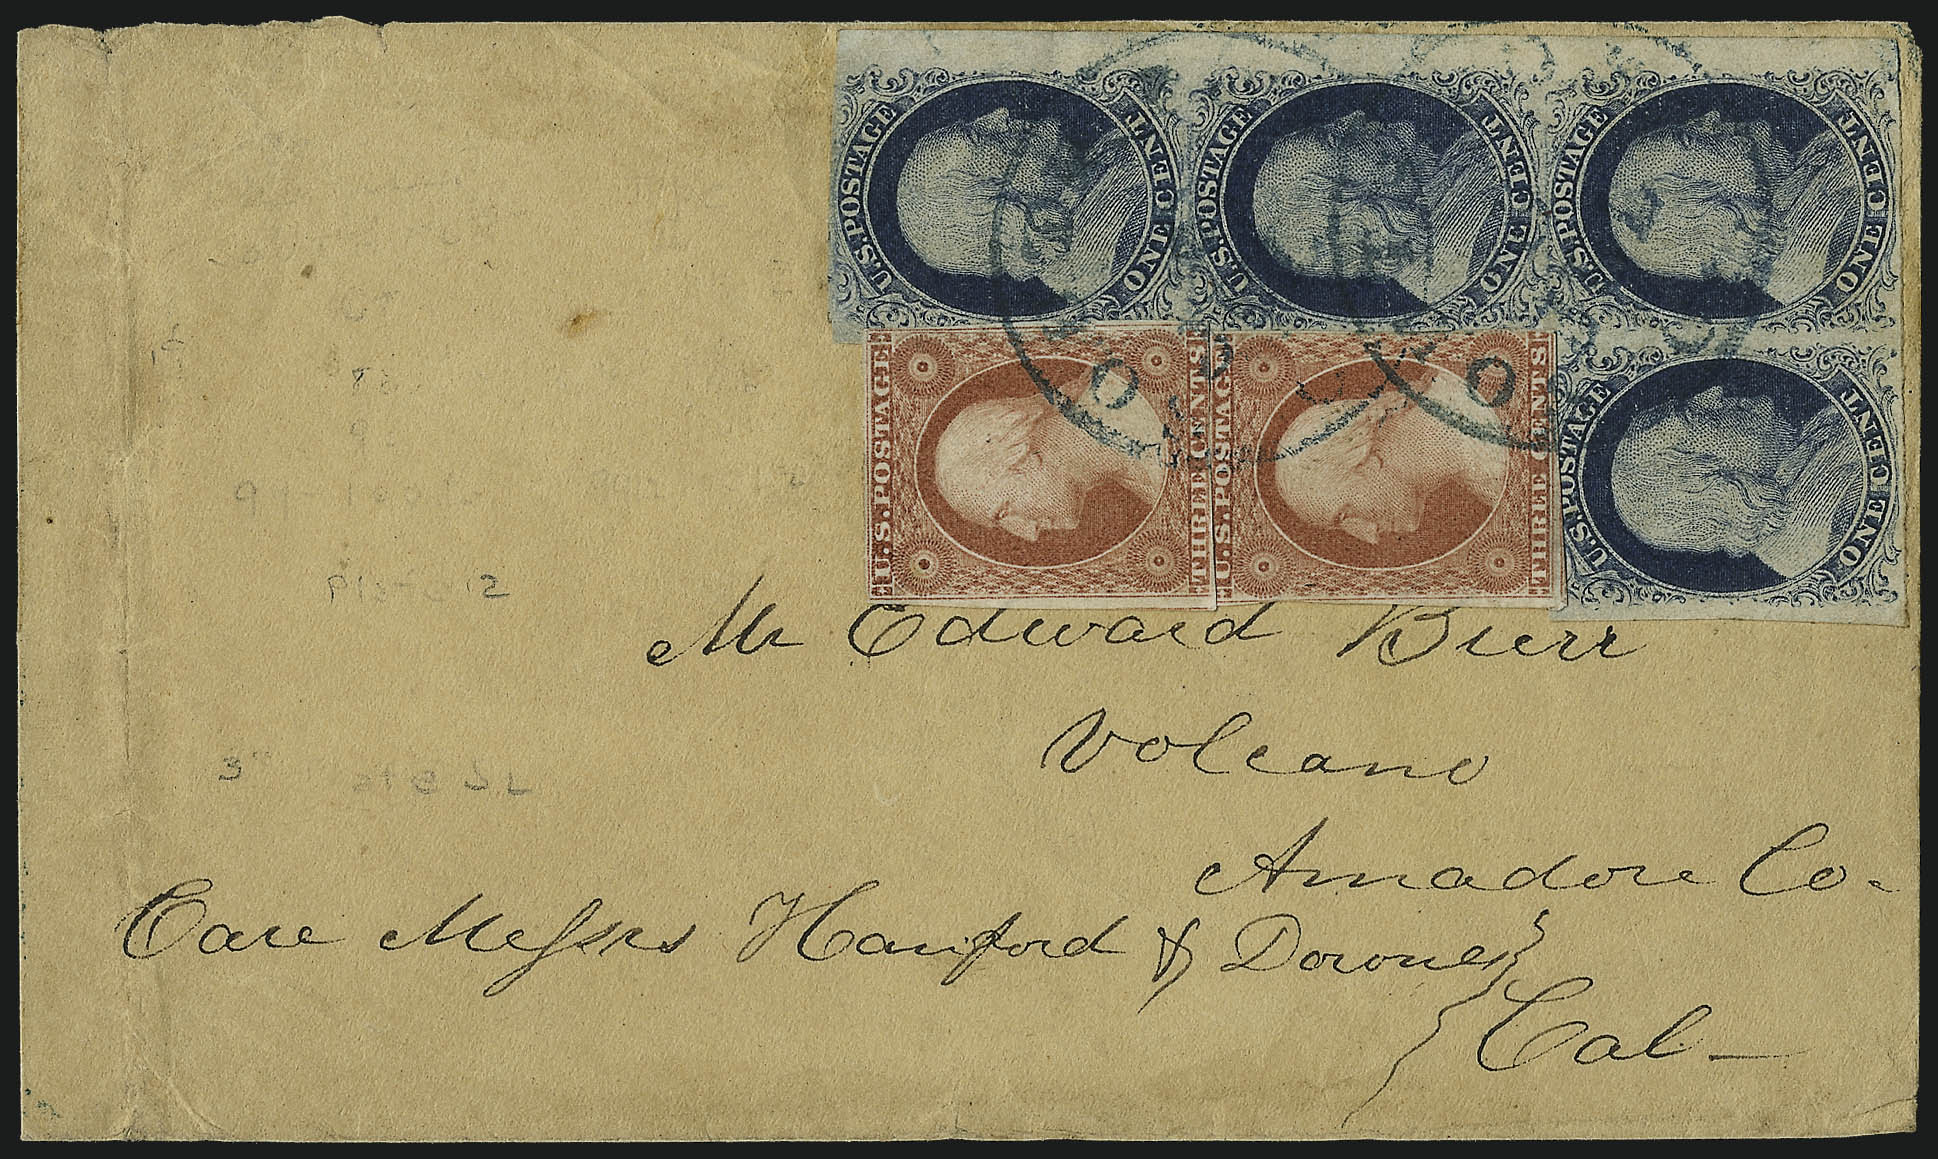 U.S.POSTAGE ONE CENT
U.S.POSTAGE ONE CENT
U.S.POSTAGE ONE CENT
U.S.POSTAGE THREE CENTS
U.S.POSTAGE THREE CENTS
U.S.POSTAGE ONE CENT
O
O
Plate 12
Mr Edward Burr
Volcano
Amadore Co.
Care Messrs Hanford & Downes
Cal